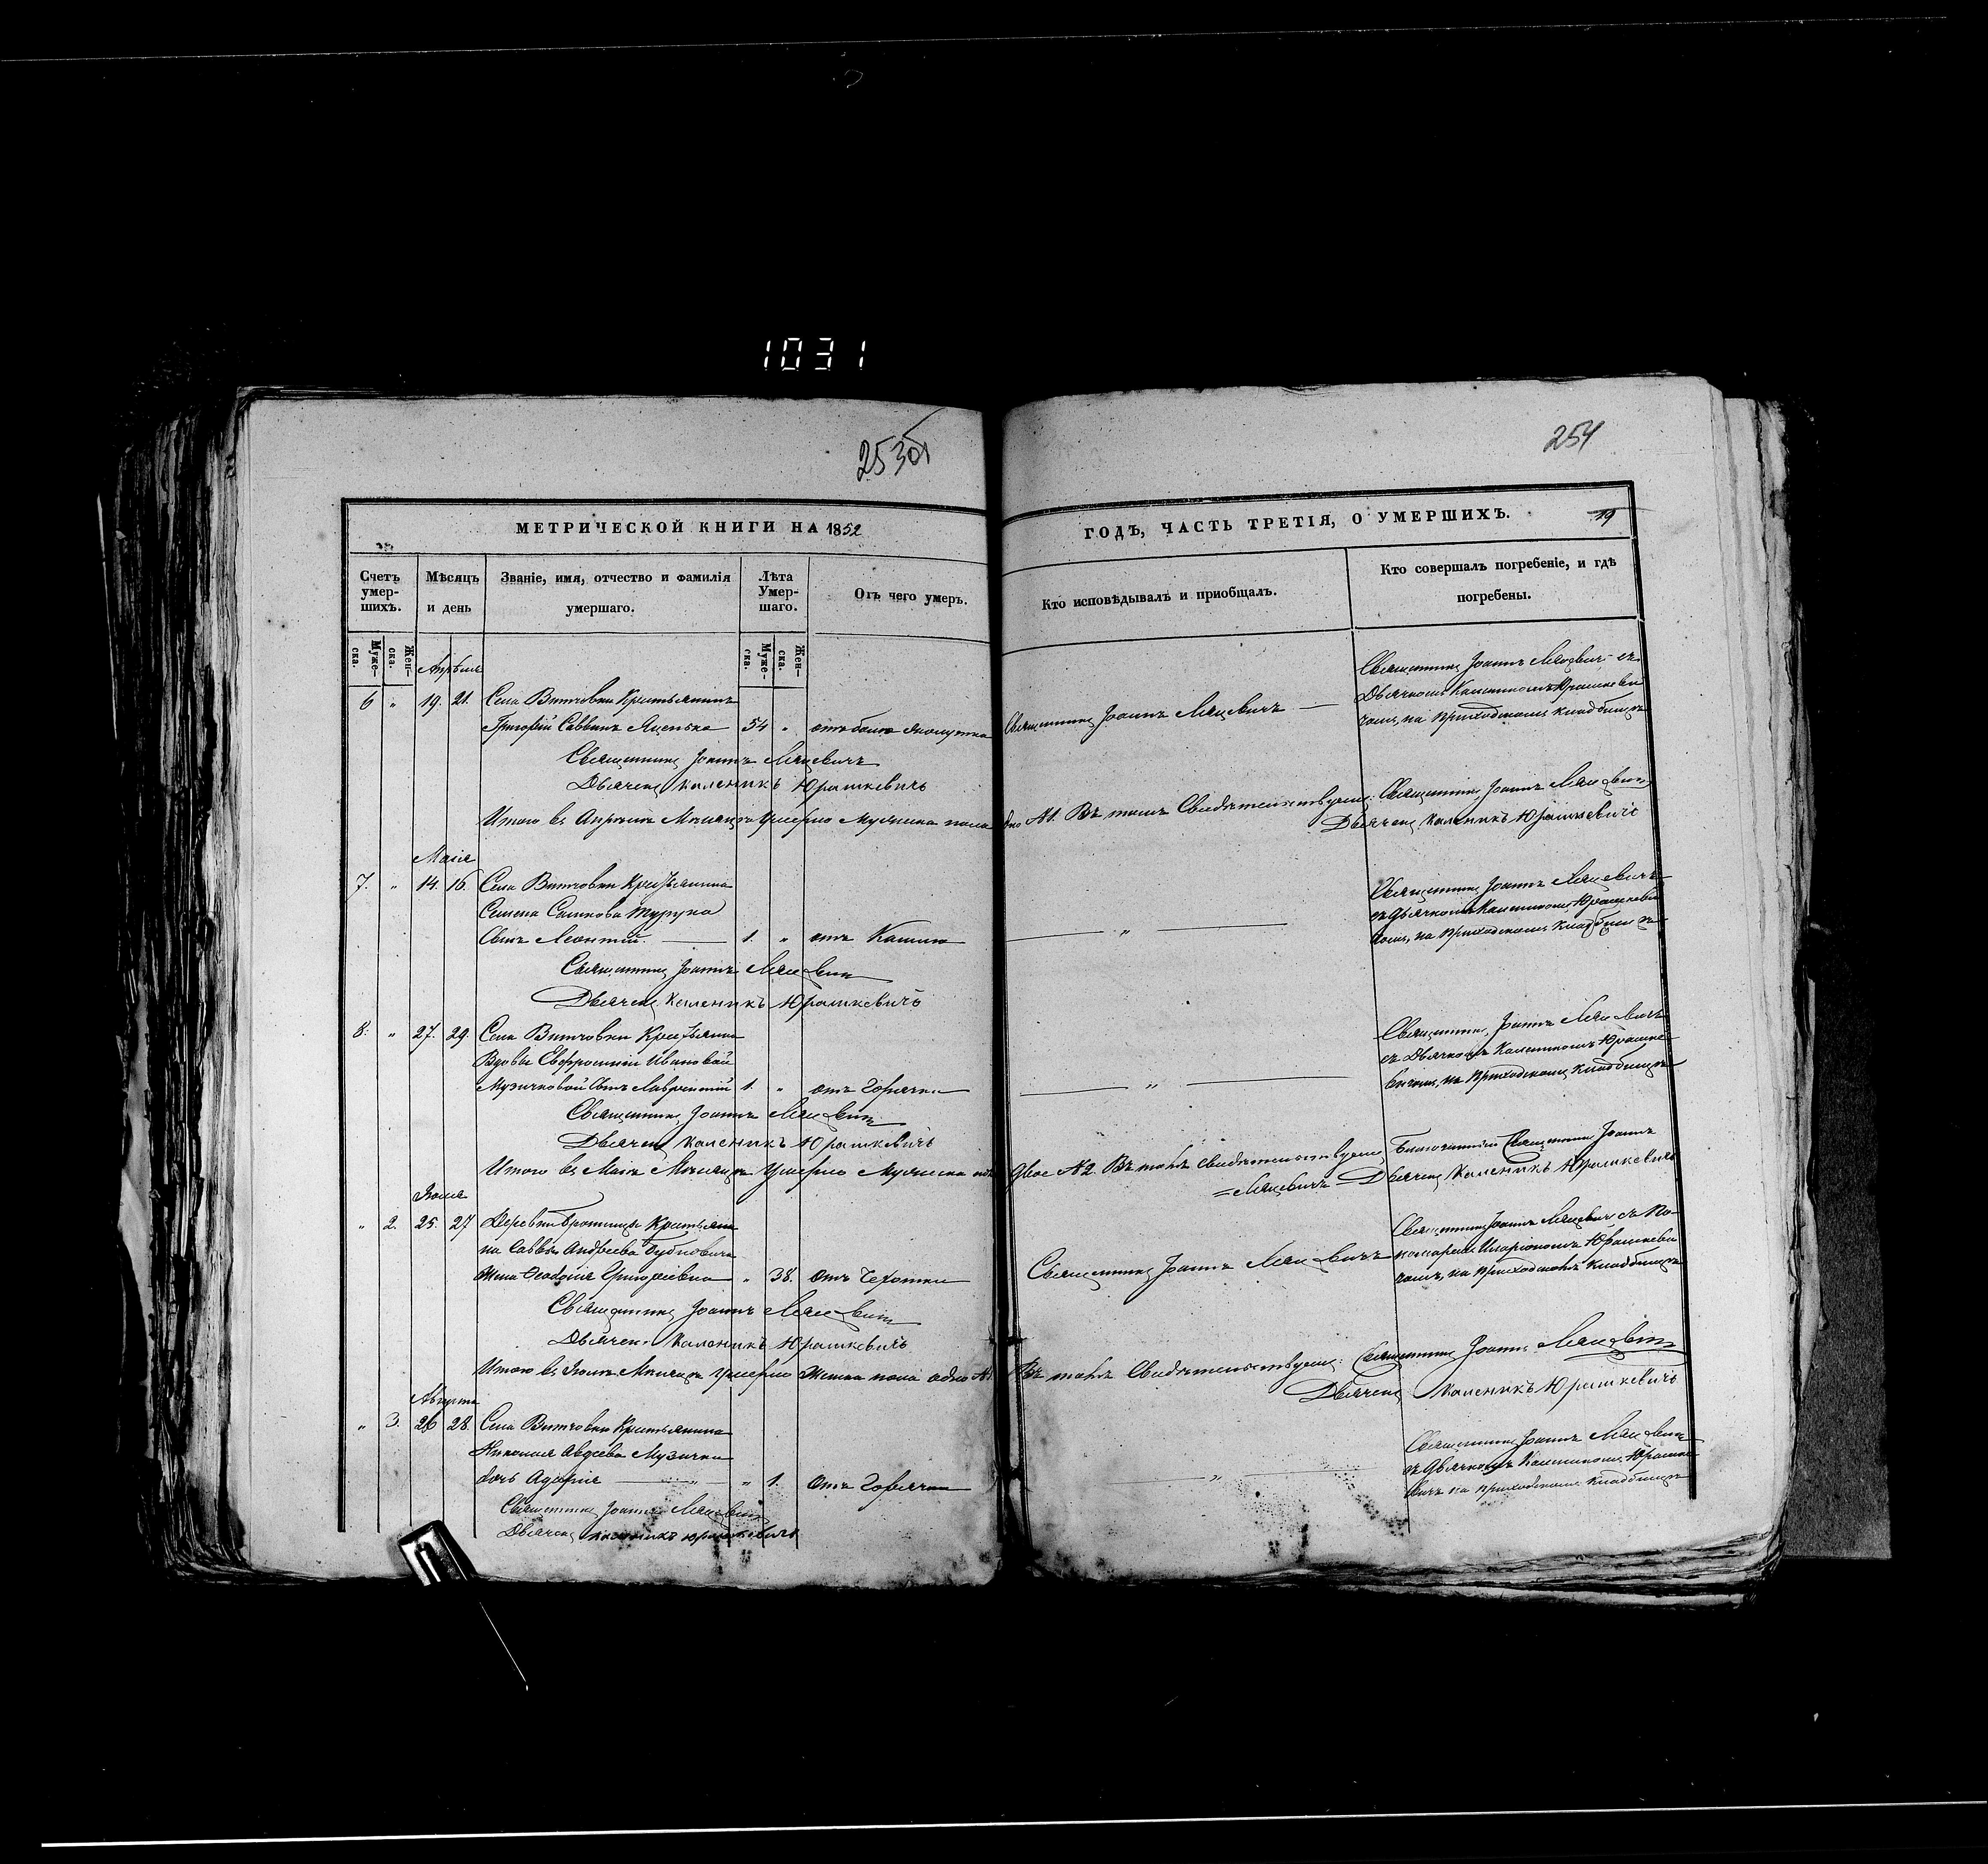 1031
253об
254
МЕТРИЧЕСКОЙ КНИГИ НА 1852
ГОДЪ, ЧАСТЬ ТРЕТІЯ, О УМЕРШИХЪ.
19
Счетъ умер-шихъ.
Мѣсяцъ и день
Званіе, имя, отчество и фамилія умершаго.
Лѣта Умер-шаго.
Отъ чего умеръ.
Кто исповѣдывалъ и приобщалъ.
Кто совершалъ погребеніе, и гдѣ погребены.
Муже-ска.
Жен-ска.
Муже-ска.
Жен-ска.
Апрѣля
6 " 19. 21. Села Витчовки Крестьянинъ
Григорій Саввинъ Яценько 54 "
Священникъ Іоаннъ Мацевичъ
Священникъ Іоаннъ Мацевичъ съ
Дьячкомъ Калеником Юрашкеви
чомъ, на Приходскомъ кладбищѣ
Священникъ Іоаннъ Мацевичъ
Дьячекъ Каленикъ Юрашкевичъ
Итого въ Апрѣлѣ Мѣсяцѣ Умерло Мужеска пола
дно №1. Въ томъ Свидѣтельствуемъ: Священникъ Іоаннъ Мацевичъ
Дьячекъ Каленикъ Юрашкевичъ
Маія
7. " 14. 16. Села Витчовки Крестьянина
Семена
Сынъ Леонтій. 1. " отъ Кашлю
"
Священникъ Іоаннъ Мацевичъ
съ Дьячкомъ Калеником Юрашкеви
чомъ, на Приходскомъ кладбищѣ
Священникъ Іоаннъ Мацевичъ
Дьячекъ Каленикъ Юрашкевичъ
8. " 27. 29. Села Витчовки Крестьянки
Вдовы Евфросиніи Ивановой
Музичковой Сынъ Лаврентій 1. " отъ Горячки
"
Священникъ Іоаннъ Мацевичъ
съ Дьячкомъ Калеником Юрашке
вичомъ, на Приходскомъ кладбищѣ
Священникъ Іоаннъ Мацевичъ
Дьячекъ Каленикъ Юрашкевичъ
Итого въ Маіѣ Мѣсяцѣ Умерло Мужеска
двое №2. Въ томъ свидѣтельствуемъ Благочинный Священникъ Іоаннъ
Мацевичъ Дьячекъ Каленикъ Юрашкевичъ
" 2. 25. 27 Деревни Кростьяни
на Саввы Андреева
Жена Ѳеодосія Григоріевна " 38. отъ Чехотки
Священникъ Іоаннъ Мацевичъ
Священникъ Іоаннъ Мацевич съ По-
номарем Иларіономъ Юрашкеви
чомъ, на Приходскомъ кладбищѣ
Священникъ Іоаннъ Мацевичъ
Дьячекъ Каленикъ Юрашкевичъ
Мѣсяцѣ умерло Женска пола одно №1.
Въ томъ Свидѣтельствуемъ: Священникъ Іоаннъ Мацевичъ
Дьячекъ Каленикъ Юрашкевичъ
Августа
" 3. 26 28. Села Витчовки Крестьянина
Николая Авдеева Музички
дочь " 1. отъ Горячки
"
Священникъ Іоаннъ Мацевичъ
съ Дьячкомъ Калеником Юрашке
вичъ на Приходскомъ кладбищѣ
Священникъ Іоаннъ Мацевичъ
Дьячекъ Каленикъ Юрашкевичъ